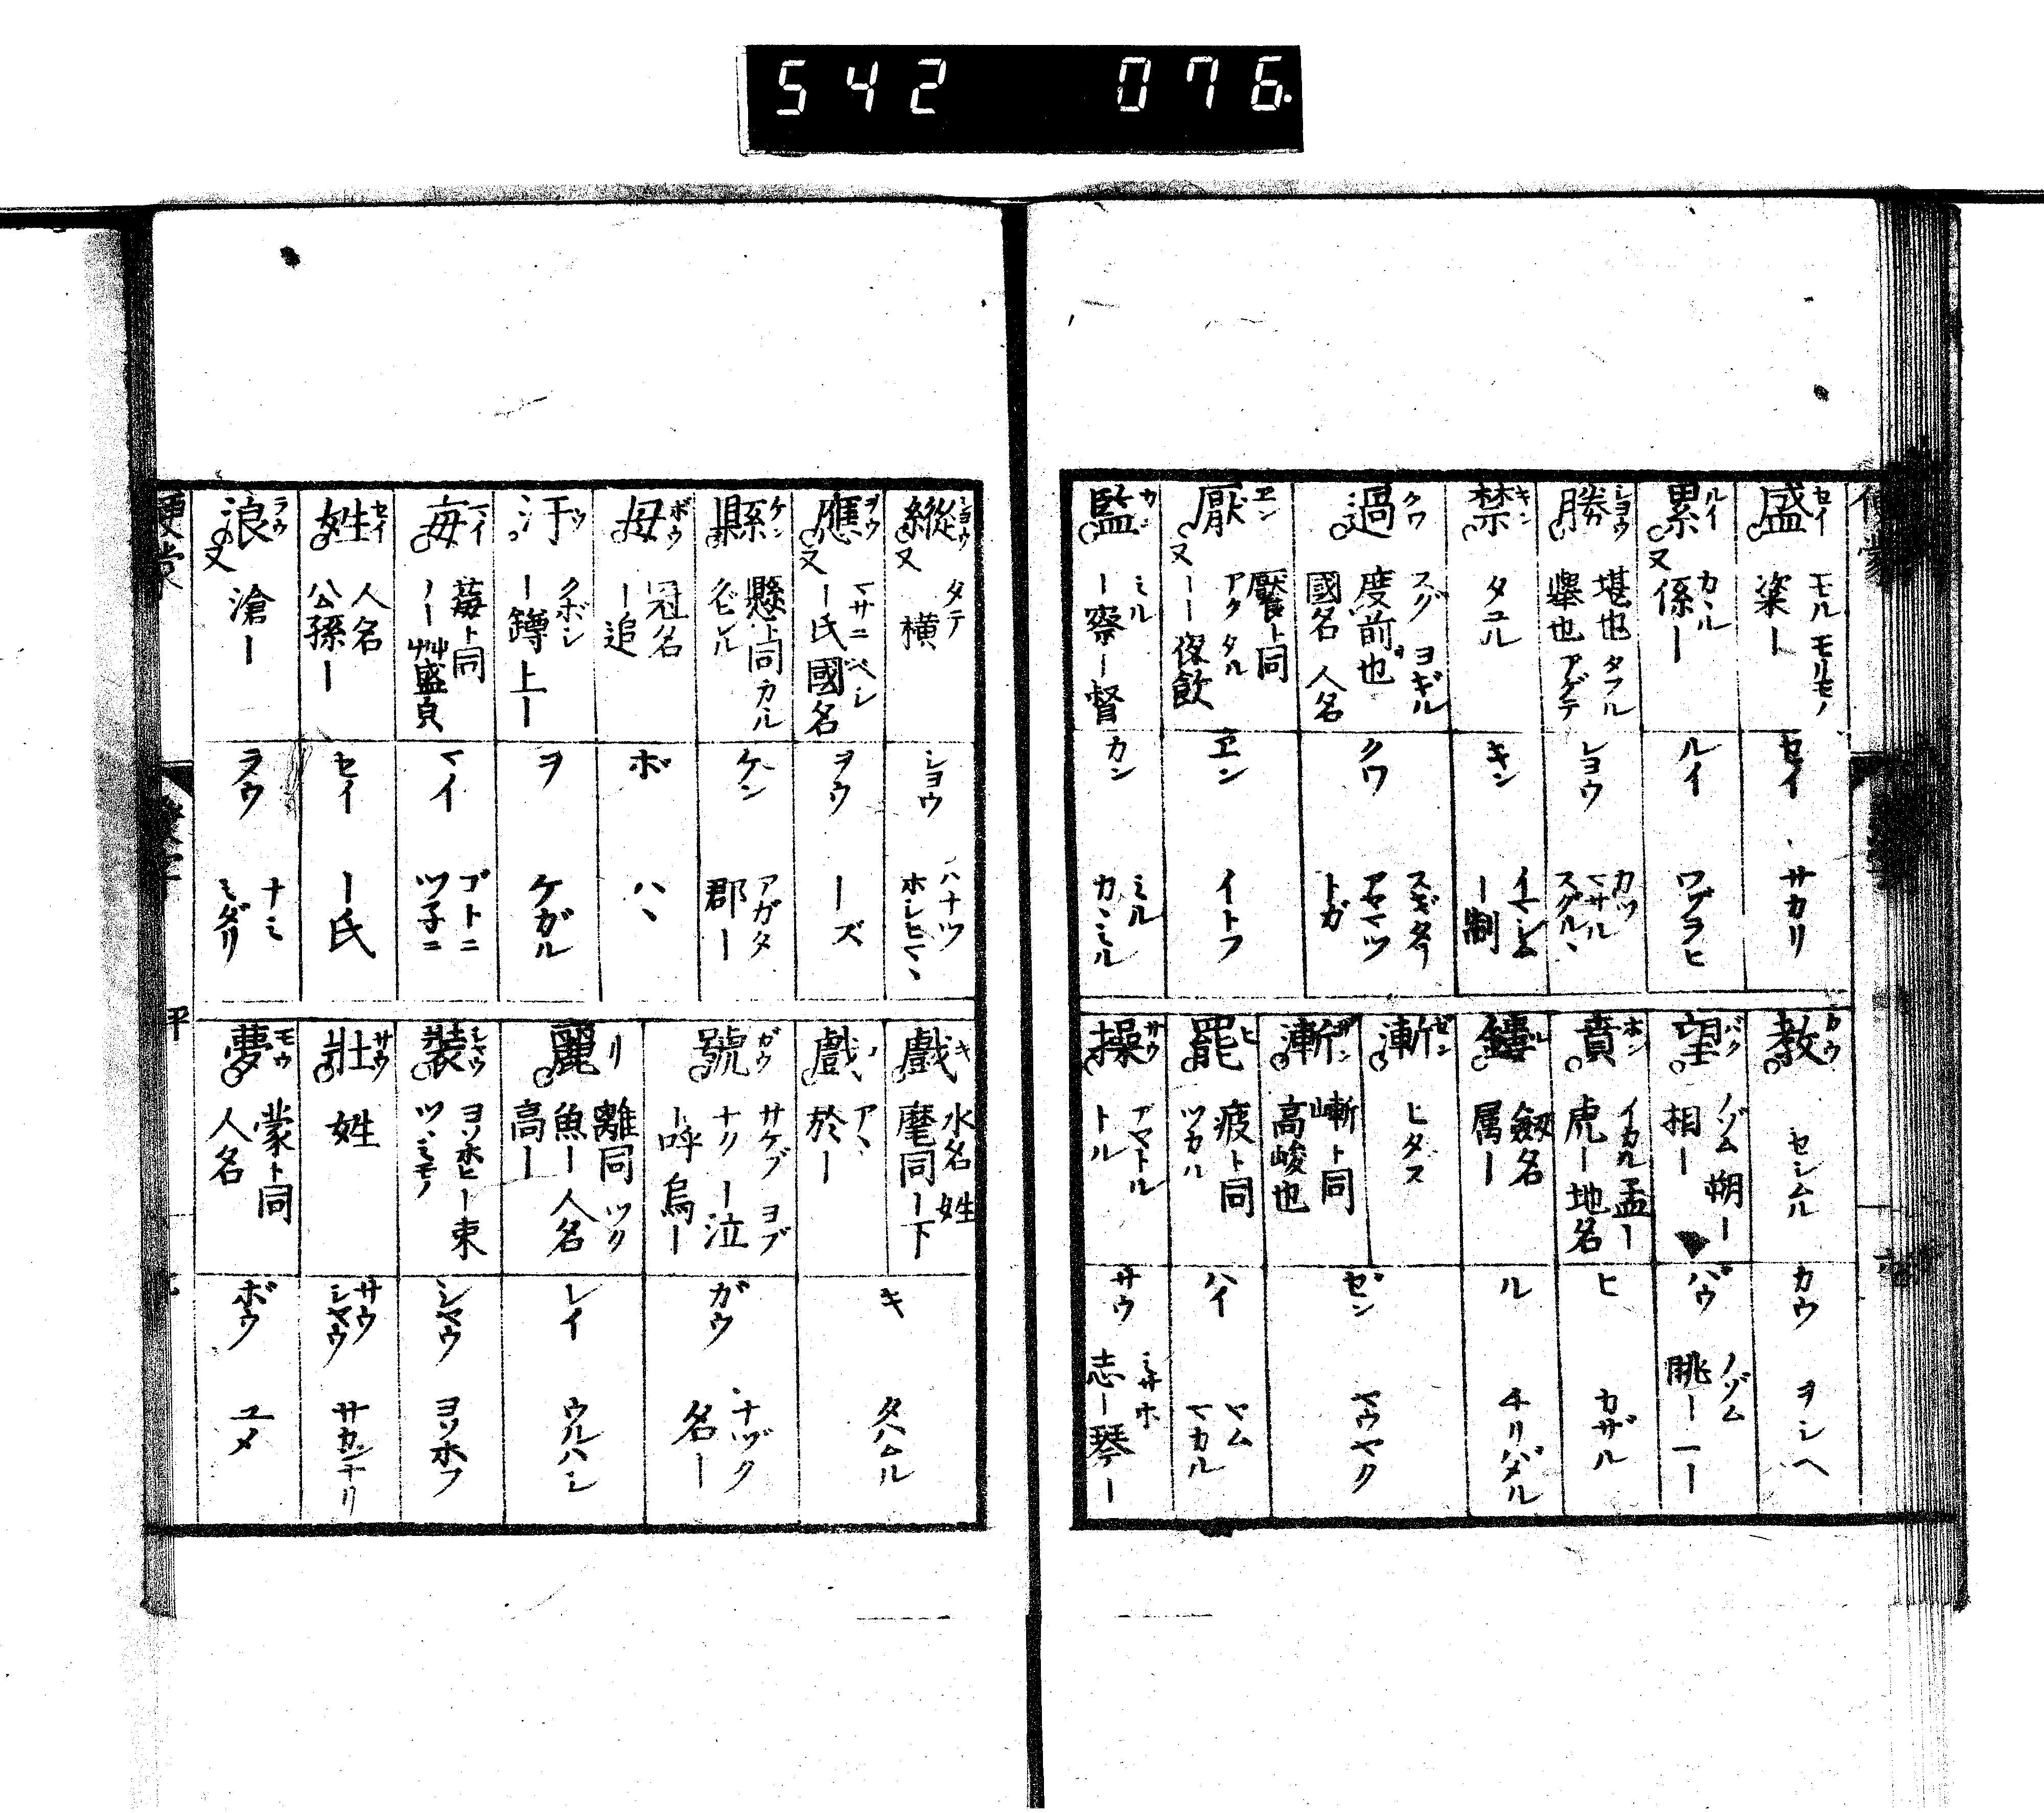 542 076.
盛 セイ モル モリモノ 粢ー セイ サカリ
累 ルイ 又 カヽル 係ー ルイ ワヅラヒ
勝 シヨウ 堪也 タフル 擧也 アゲテ シヨウ カツ マサル スグルヽ
禁 キン タユル キン イマシム ー制
過 クワ スグ ヨギル 度前也 國名 人名 クワ スギタリ アヤマツ トガ
厭 エン 又 饜ト同 アク タル ーー夜飲 エン イトフ
監 カン ミル ー察ー督 カン ミル カヾミル
教 カウ セシムル カウ ヲシヘ
望 バウ ノゾム 朔ー 相ー バウ ノゾム 眺ー 一ー
賁 ホン イカル 孟ー 虎ー 地名 ヒ カザル
鏤 ル 劔名 属ー ル チリバメル
漸 ゼン ヒタス
漸 ザン 嶃ト同 高峻也 ゼン ヤウヤク
罷 ヒ 疲ト同 ツカル ハイ ヤム マカル
操 サウ アヤトル トル サウ ミサホ 志ー琴ー
縱 シヨウ 又 タテ 横 シヨウ ハナツ ホシヒマヽ
應 ヲウ 又 マサニベシ ー氏國名 ヲウ ーズ
縣 ケン 懸ト同 カヽル クビル ケン アガタ 郡ー
毋 ボウ 冠名 ー追 ボ ハヽ
汙 ウ クボシ ー罇 上ー ヲ ケガル
毎 マイ 莓ト同 ーー艸盛皃 マイ ゴトニ ツ子ニ
姓 セイ 人名 公孫ー セイ ー氏
浪 ラウ 又 滄ー ラウ ナミ ミダリ
戲 キ 水名 姓 麾同 ー下
戲 アヽ 於ー キ タハムル
號 ガウ サケブ ヨブ ナク ー泣 ー呼 烏ー ガウ ナヅク 名ー
麗 リ 離同 ツク 魚ー 人名 高ー レイ ウルハシ
裝 シヤウ ヨソホヒ ー束 ツヽミモノ シヤウ ヨソホフ
壯 サウ 姓 サウ シヤウ サカンナリ
夢 モウ 蒙ト同 人名 ボウ ユメ